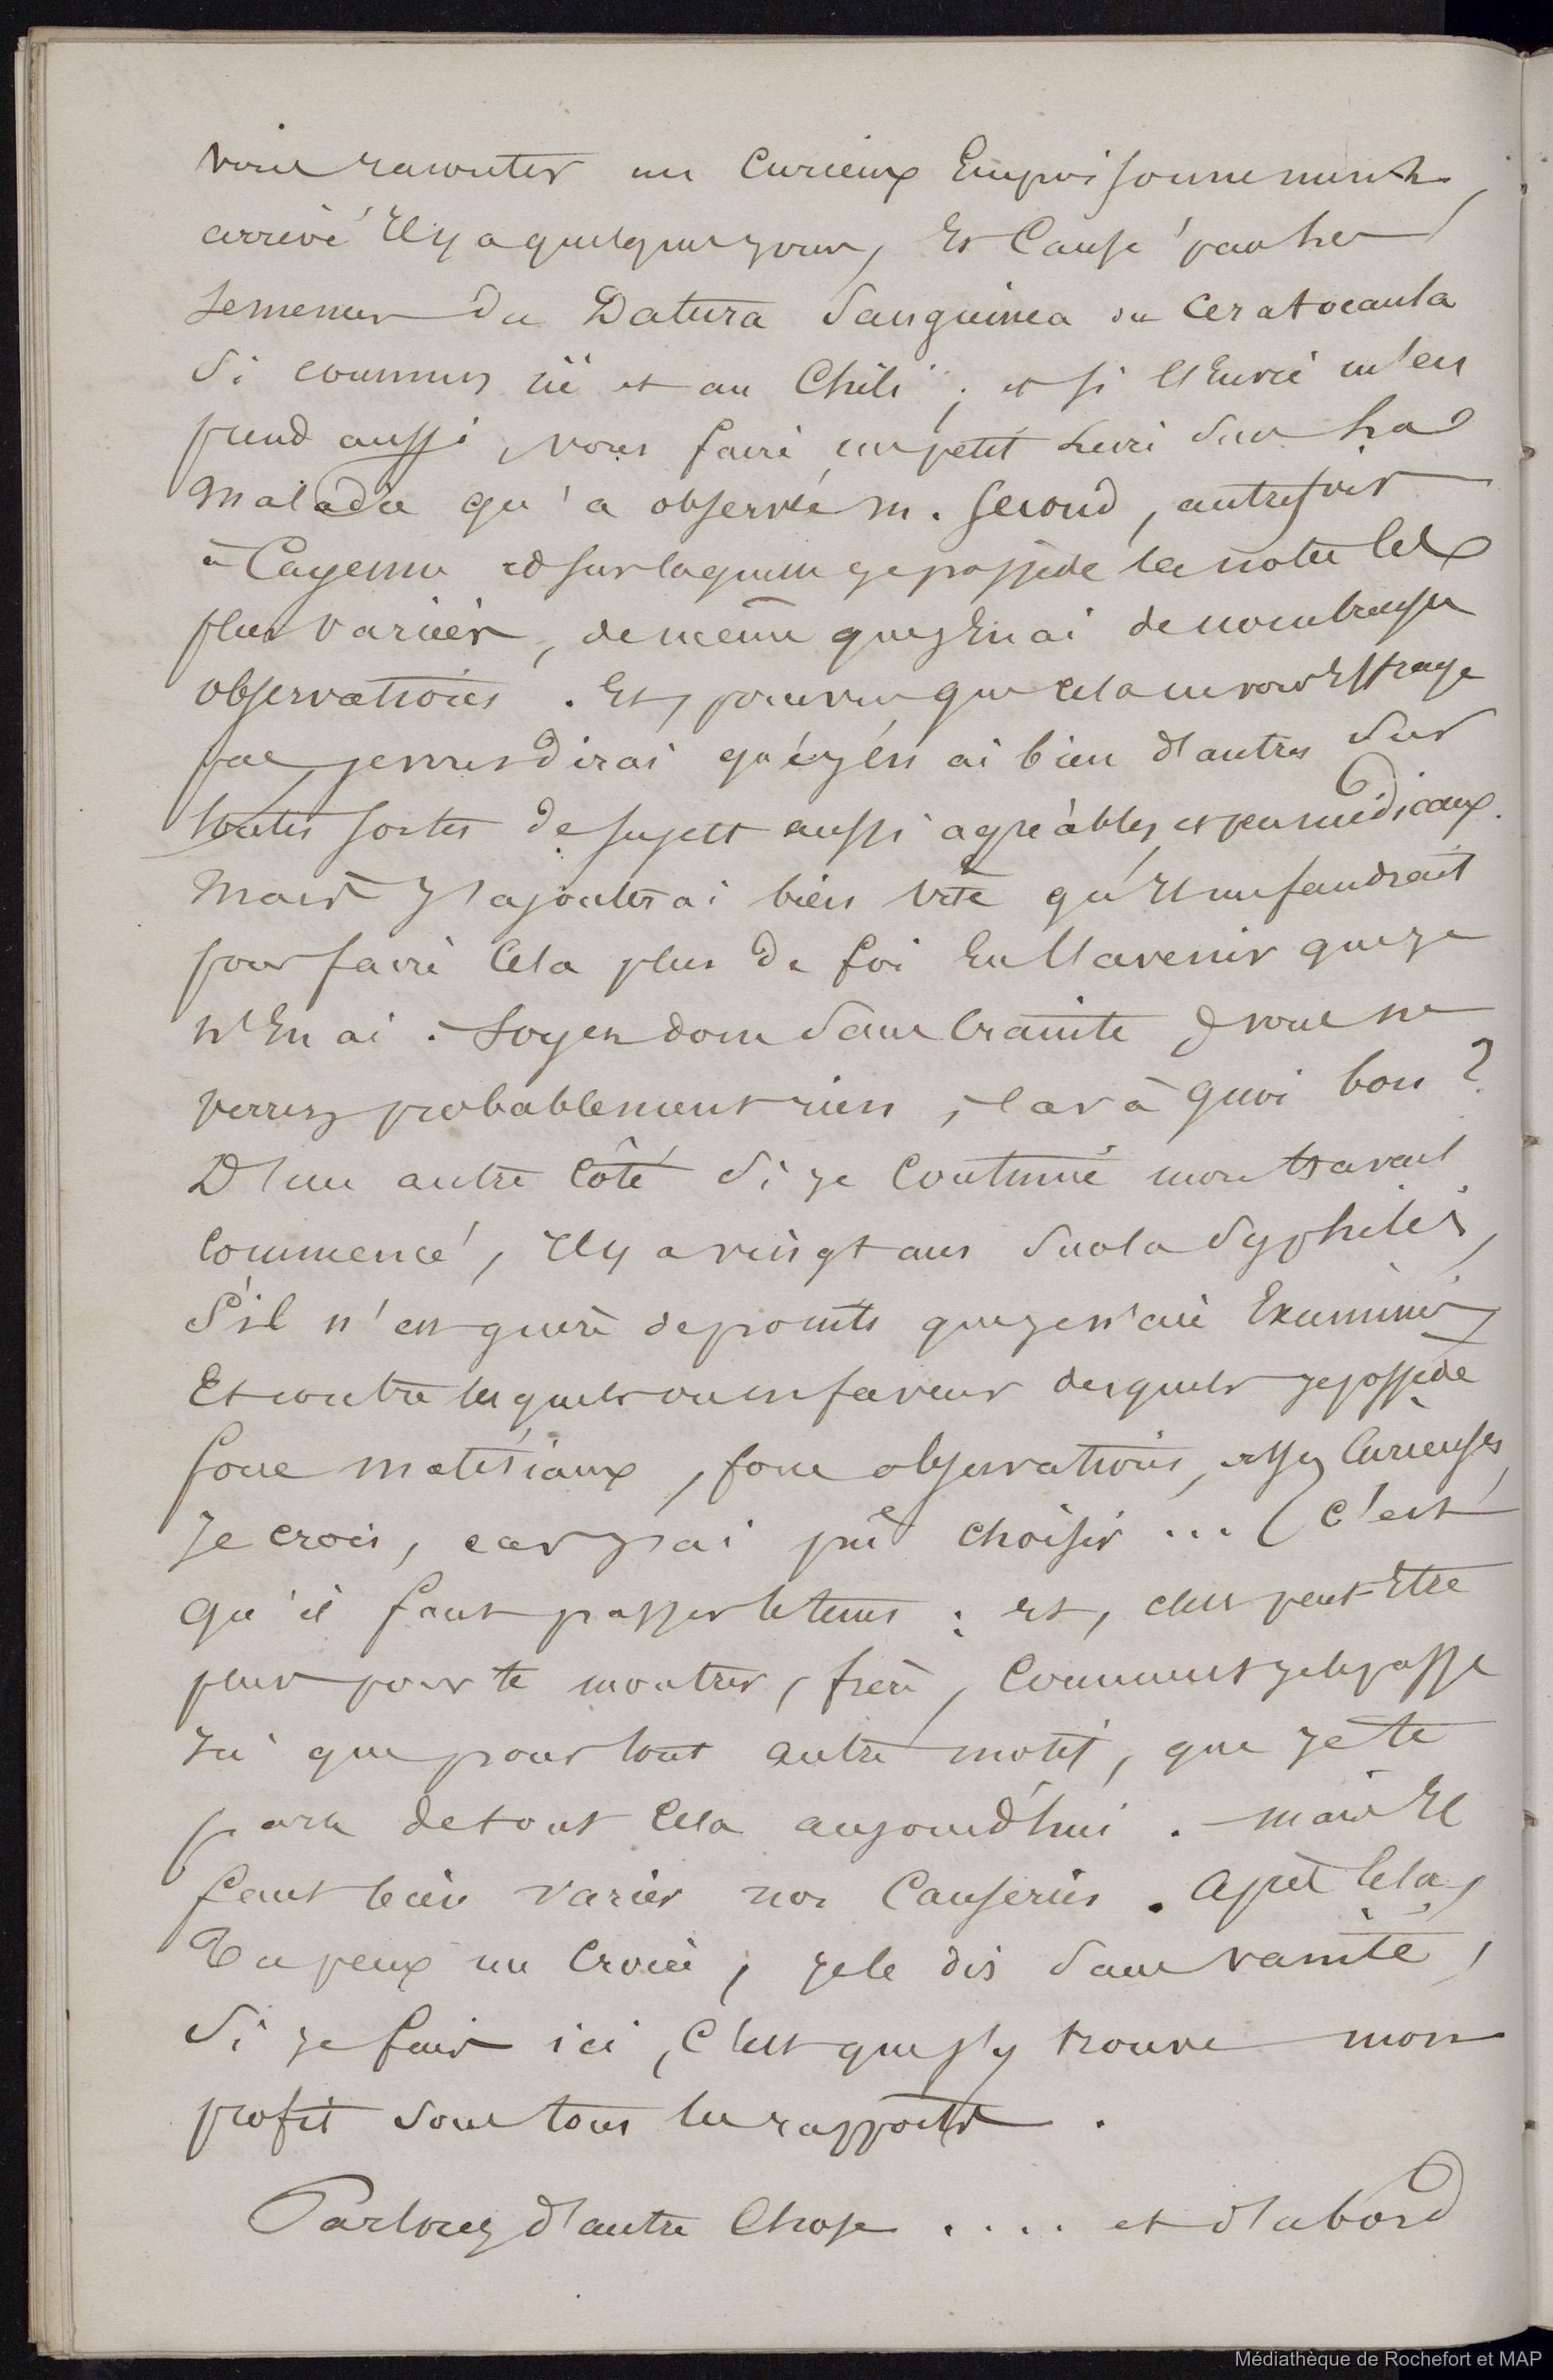 vous raconter un curieux Empoisonnement
arrivé Il y a quelques jours, Et Causé par les
semences du Datura Sanguinea ou Ceratocaula
si communs ici et au Chili ; et si l'Envie m'en
prend aussi, vous faire un petit Livre sur la
Maladie qu'a observée M. Second, autrefois
à Cayenne et sur laquelle je possède les notes les
plus variées, de même que j'En ai de nombreuses
observations. Et, pourvu que cela ne vous Effraye
pas, je vous dirai que j'en ai bien d'autres sur
toutes sortes de sujets aussi agréables, et peu médicaux.
Mais J'ajouterai bien vite qu'Il me faudrait
pour faire Cela plus de foi En l'avenir que je
n'En ai. Soyez donc sans Crainte & vous ne
verrez probablement rien, Car à quoi bon ?
D'un autre Côté si je Continue mon travail
Commencé, Il y a vingt ans sur la Syphilis,
S'il n'est guère de points que je n'aie Examinés
Et contre lesquels ou en faveur desquels je possède
force matériaux, force observations, assez Curieuses,
Je crois, car j'ai pu choisir ... (C'est
qu'il faut passer le tems : et, c'est peut-Etre
plus pour te montrer, frère, Comment je le passe
Ici que pour tout autre motif, que je te
parle de tout Cela aujourd'hui. - mais Il
faut bien varier nos Causeries. Après Cela,
Tu peux me Croire, je le dis sans vanité,
Si je suis ici, C'est que j'y trouve mon
profit sous tous les rapports.
Parlons d'autre Chose .... et d'abord
Médiathèque de Rochefort et MAP